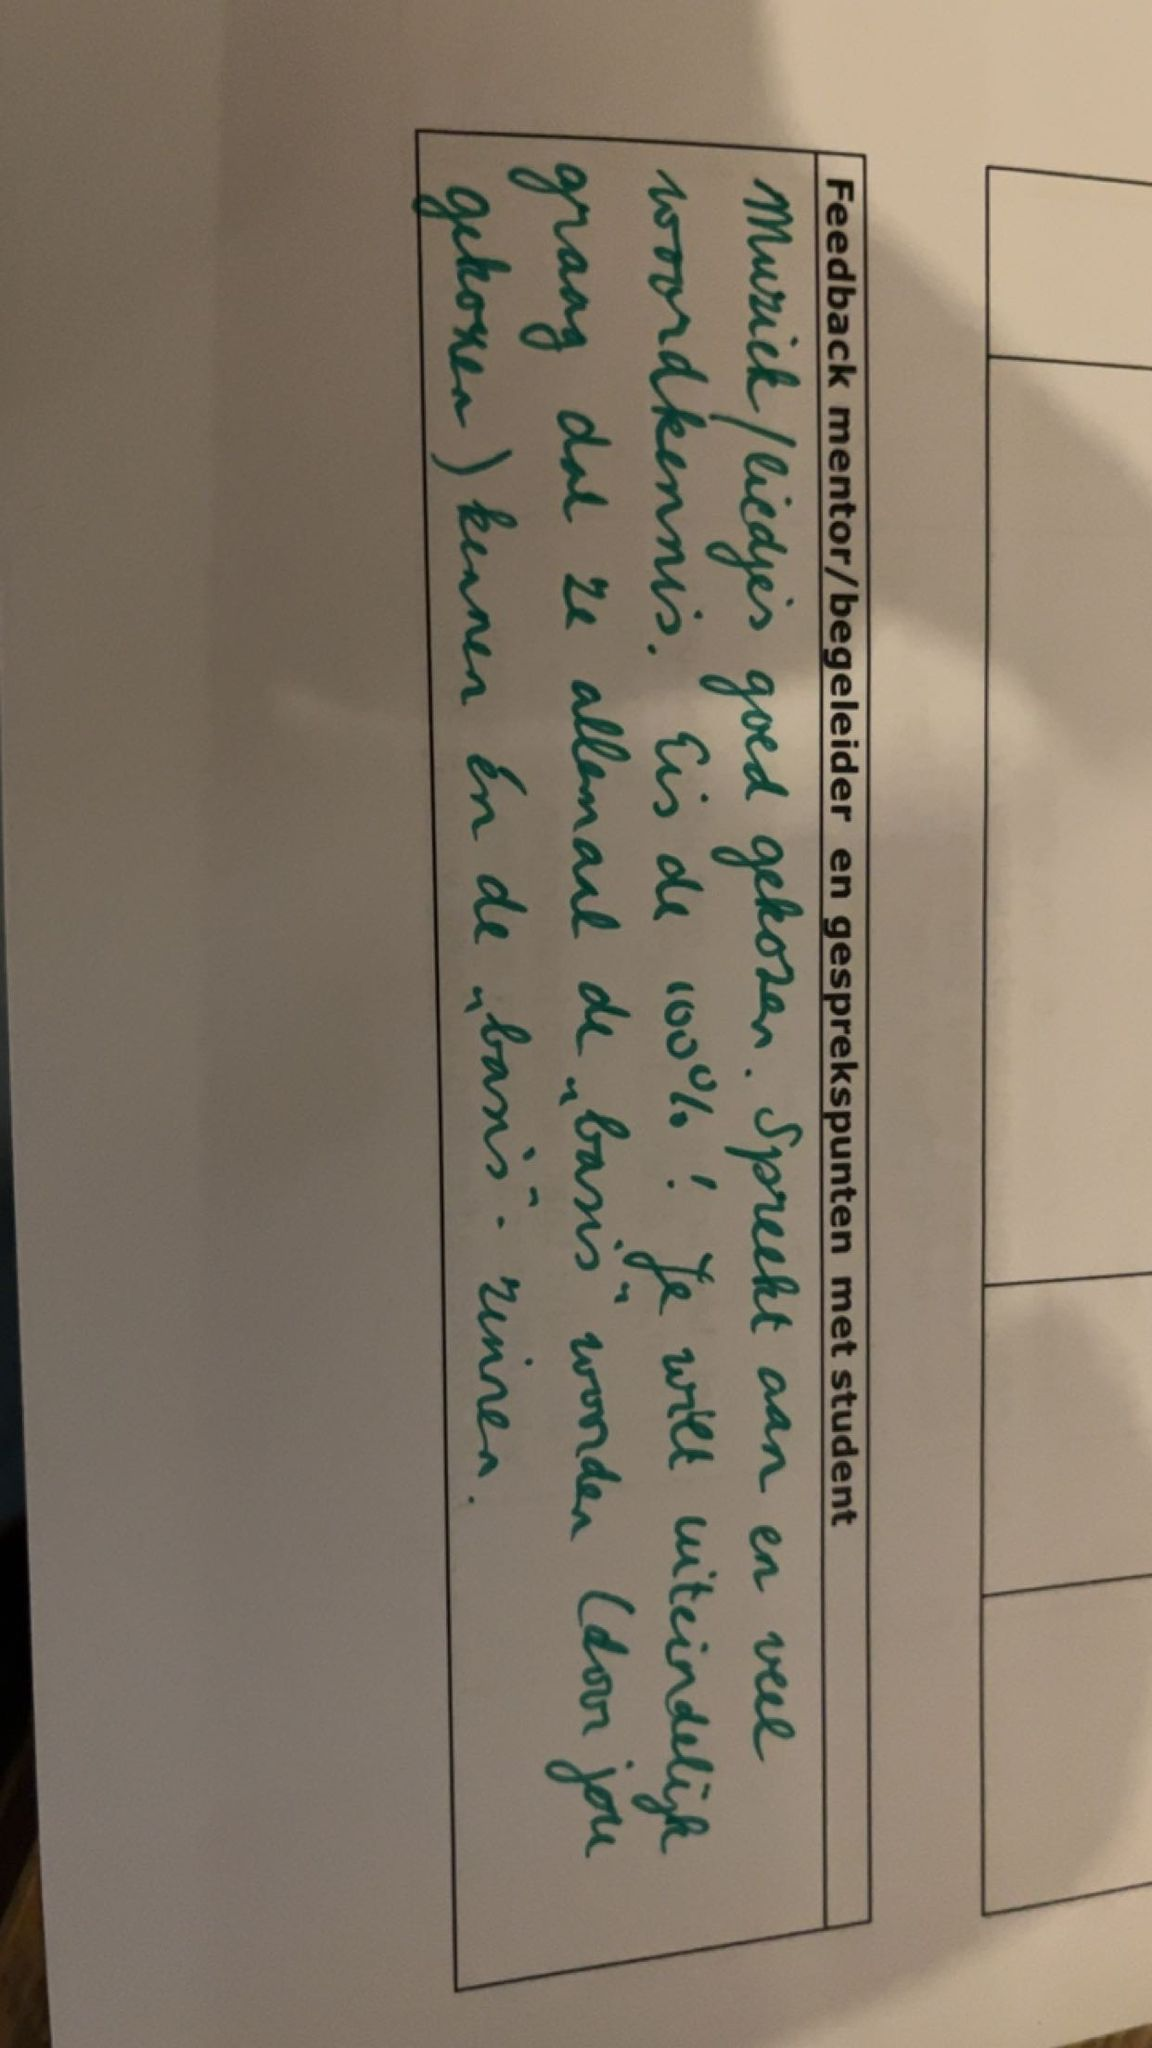 Feedback mentor/begeleider en gesprekspunten met student
Muziek/liedjes goed gekozen. Spreekt aan en veel
woordkennis. Eis de 100%! Je wilt uiteindelijk
graag dat ze allemaal de „basis" woorden (door jou
gekozen) kennen én de „basis"- zinnen.